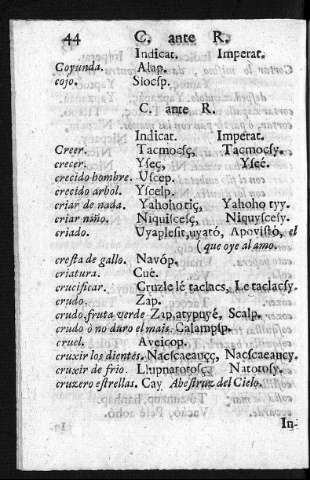 44 C. ante R.
Indicat. Imperat.
Coyunda. Alap.
cojo. Slocsp.
C. ante R.
Indicat. Imperat.
Creer. Tacmocsç, Tacmocsy.
crecer. Yseç, Yseé.
crecido hombre. Uscep.
crecido arbol. Yscelp.
criar de nada. Yahohotiç, Yahoho tyy.
criar niño. Niquiscesç, Niquyscesy.
criado. Uyaplesit,uyató, Apovistò, el
(que oye al amo.
cresta de gallo. Navóp.
criatura. Cué.
crucificar. Cruzle lé taclacs, Le taclacsy.
crudo. Zap.
crudo,fruta verde Zap,atypuyé, Scalp.
crudo ò no duro el mais. Calampsp.
cruel. Aveicop.
cruxir los dientes. Nacscaeauçç, Nacscaeaucy.
cruxir de frio. Llupnatotosç, Natotosy.
cruzero estrellas. Cay Abestruz del Cielo.
In-